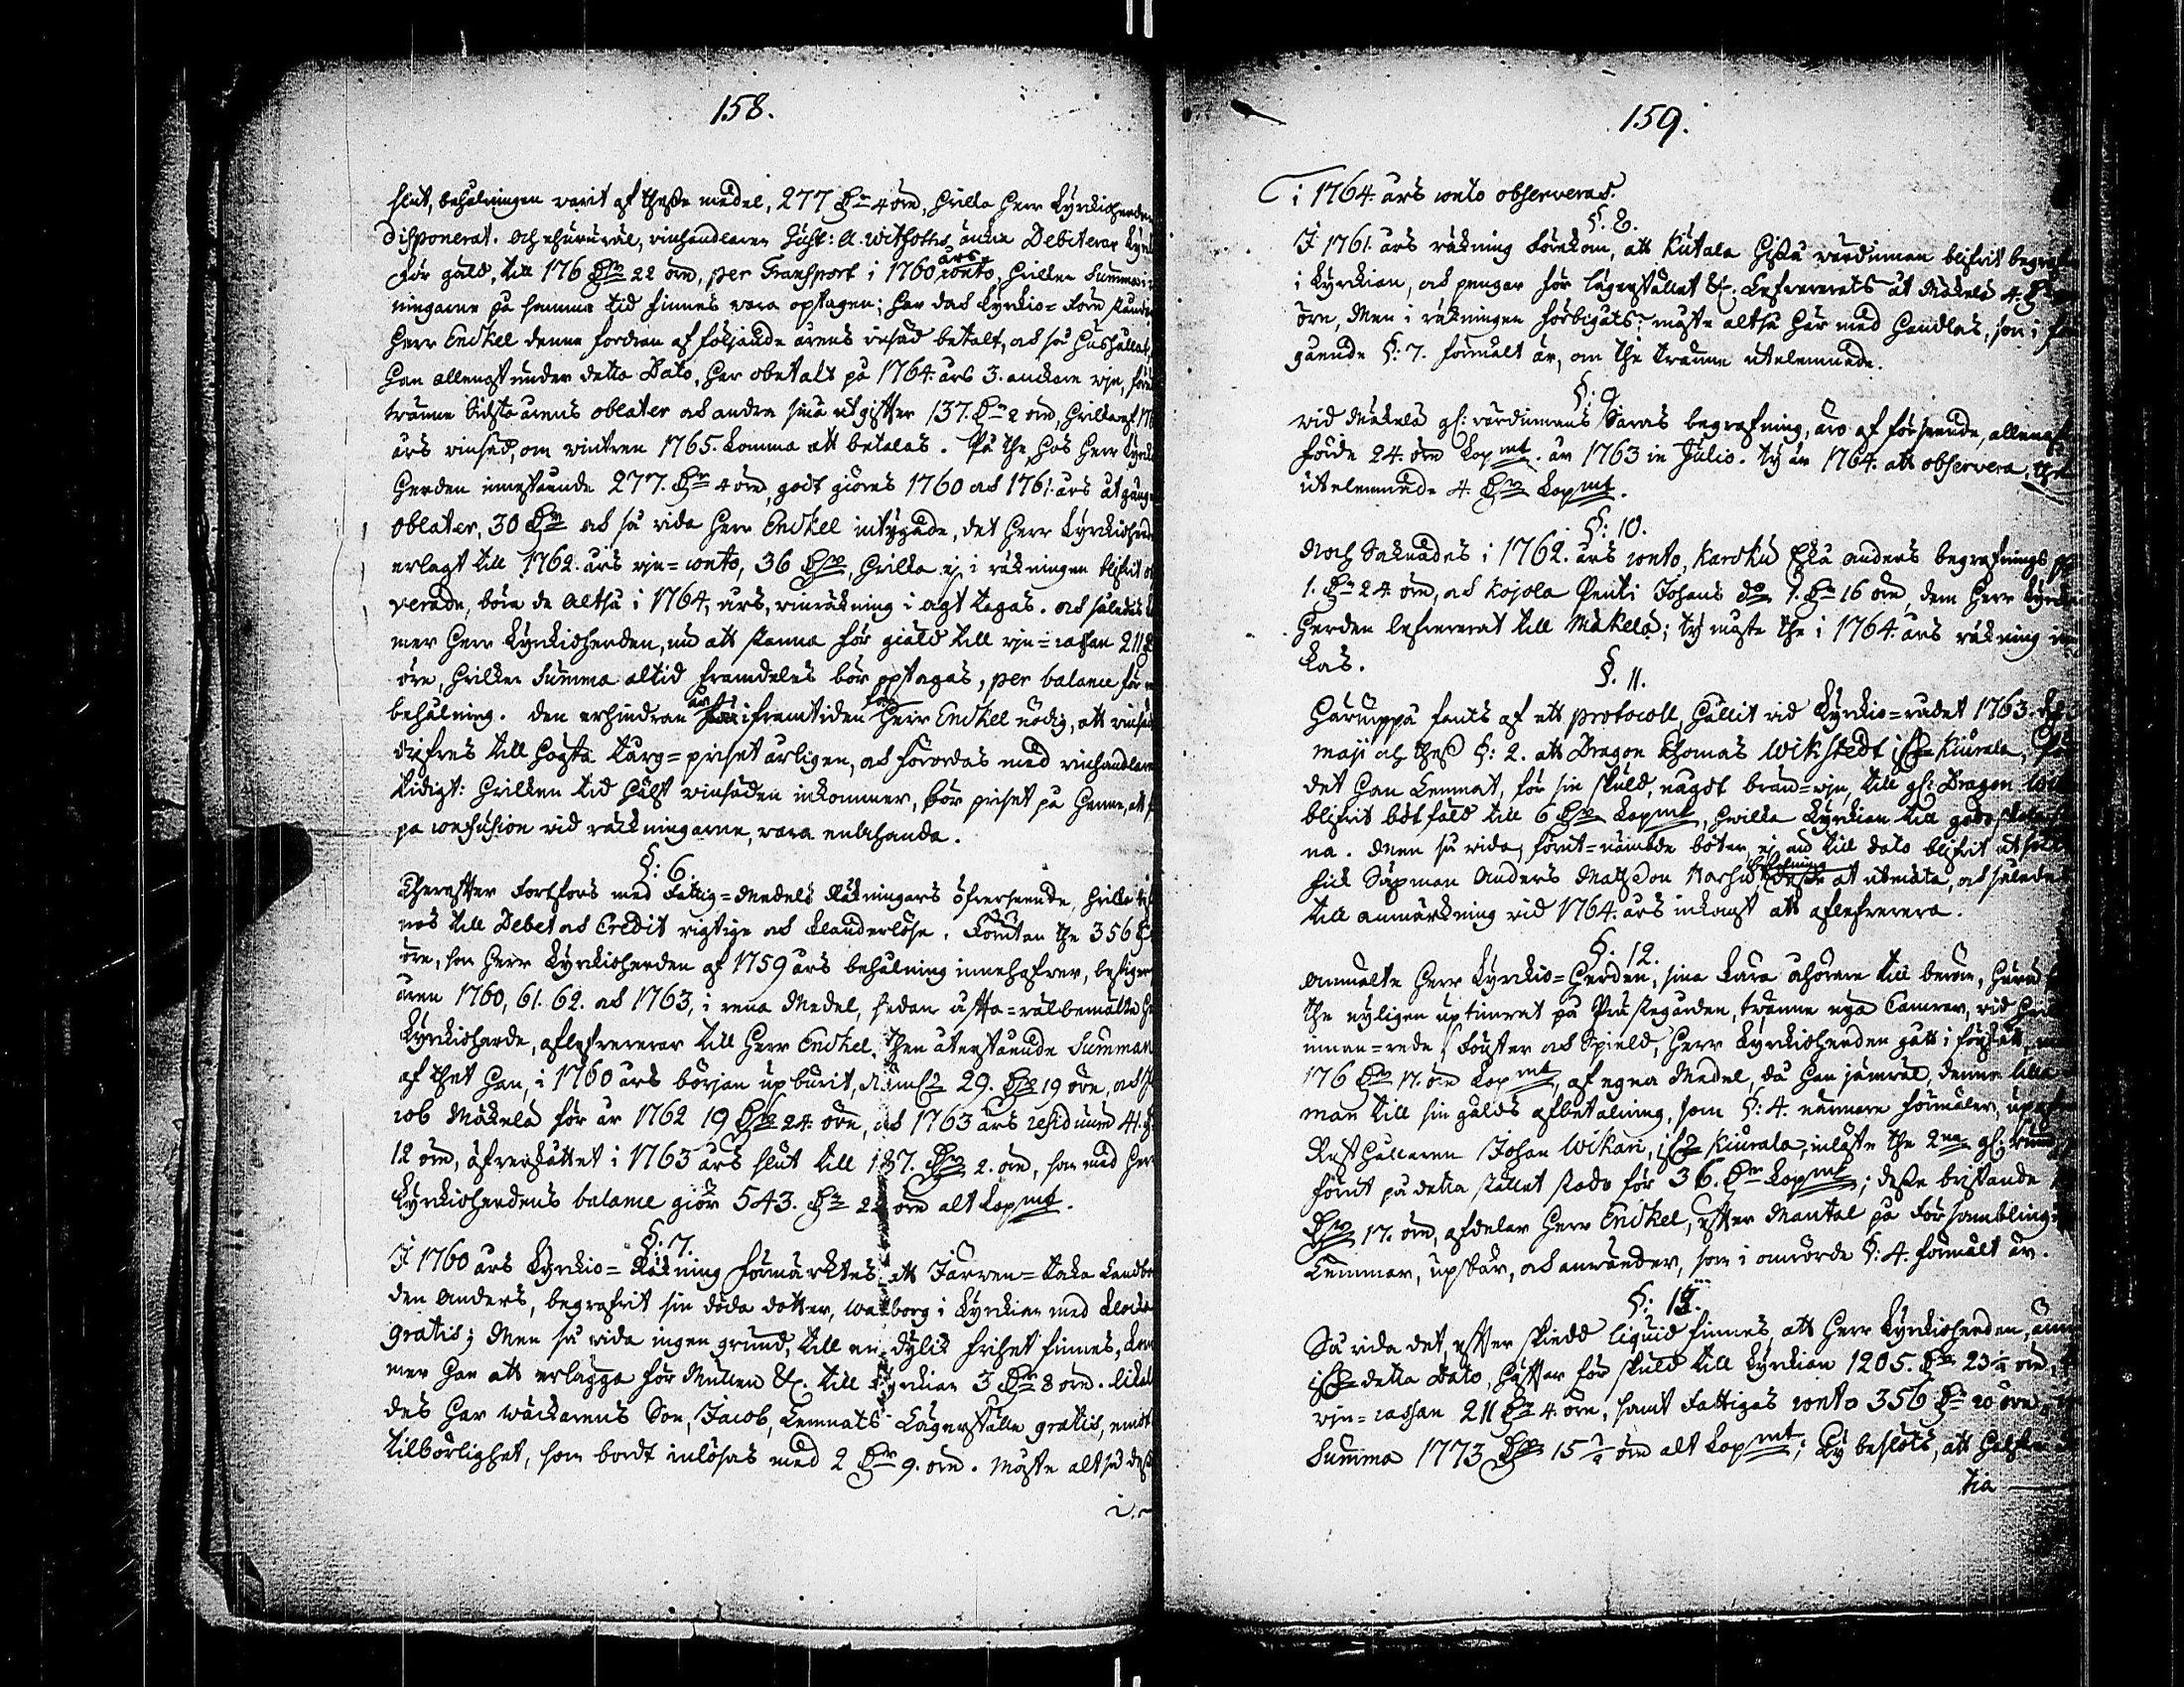 158.
slut, behålningen varit af thesse medel, 277 Dr 4 öre, hvilka Herr Kyrckioherden
disponerat. och ehuruväl, vinhandlaren Just: A. Witfotts änka Debiterar Kyrck
för gäld, till 176 Dr 22 öre, per Transport i 1760 års conto, hvilken Summa i
ningarne på samma tid finnes vara optagen; har dock Kyrkio-Före standa
Herr Enckel denna fordran af följande årens insad betalt, och så hushållat,
han allenast under detta Dato, har obetalt på 1764. års 3. anckare vin, före
tvänne Sidsta årens oblater och andra små utgifter 137. Dr 2 öre, hvilka af 17
års vinsad, om vintren 1765. komma att betalas. På the, hos Herr Kyrck
herden innestående 277. Dr 4 öre, godt giöres 1760 och 1761. års åtgång
oblater, 30 Dr och så vida Herr Enckel intygade, det Herr Kyrckioherd
erlagt till 1762. års vin-conto, 36 Dr, hvilka ej i räkningen blifvit o
verade, böra de altså i 1764, års, vinräkning i agt tagas. och således k
mer Herr Kyrckioherden, nu att stanna för giäld till vin-cassan 211 D
öre, hvilken Summa altid framdeles bör optagas, per balance för
behålning. Den erhindran är i framtiden för Herr Enckel nödig, att vinsad
drifves till högsta Targ-priset årligen, och förordas med vinhandlare
tidigt: hvilken tid hälst vinsäden inkommer, bör priset på henne, att
pa confusion vid räckningarne, vara enahanda.
§: 6.
Therefter Fortfors med Fattig-Medels Räkningars öfverseende, hvilka bef
nos till Debet och Credit rigtige och klanderlöse. Förutan the 356 D
öre, som Herr Kyrckioherden af 1759 års behålning innehafver, bestiger
åren 1760, 61. 62. och 1763, i rena Medel, sedan ofta-välbemälte H
Kyrckioherde, aflefvererar till Herr Enckel, then återstående Summan
af thet han, i 1760 års början upburit, Nämln 29. Dr 19 öre, och J
cob Mäkelä för år 1762 19 Dr 24 öre, och 1763 års residuum 41. D
12 öre, öfverskottet i 1763 års slut till 187. Dr 2. öre, som med Herr
Kyrckioherdens balance giör 543. Dr 22 öre alt kopmt.
§: 7.
I 1760 års Kyrckio-Räkning förmärktes att Järven-taka Landbo
den Anders, begrafvit sin döda dotter, Walborg i Kyrckian med klocka
gratis; Men så vida ingen grund, till en dylik frihet finnes, kom
mer han att erlägga för Mullen &c. till Kyrckian 3 Dr 8 öre. Likal
des har Wäckarens Son, Jacob, lemnats Lägerställe gratis, emot
tilbörlighet, som bordt inlösas med 2 Dr 9. öre. Måste altså dess
i
159.
i 1764. års conto observeras.
§. 8.
I 1761. års räkning förekom, att Kutala Gista värdinnan blifvit begrafven
i Kyrckian, och pengar för lägerstället &c. Lefvererats åt Mäkelä 4. Dr
öre, Men i räkningen förbigåts: måste altså här med handlas, som i för
gående §: 7. förmält är, om the tvänne utelemnade.
§: 9.
vid Mäkelä gl: värdinnans Saras begrafning, äro af förseende, allenast
förde 24. öre kopmt. år 1763 in Julio. ty är 1764. att observera the
utelemnade 4. Dr kopmt.
§: 10.
Noch Saknades i 1762. års conto, Karsku Eskä Anders begrafnings
1. Dr 24 öre, och Kojola Pentti Johans do 1. Dr 16 öre, dem Herr Kyrckio
Herden lefvererat till Mäkelä; ty måste the i 1764. års räkning in
kas.
§. 11.
Häruppå fants af ett protocoll, hållit vid Kyrckio-rådet 1763. d
maji och thess §: 2. att Dragon Thomas Wikstedt ifrån Kiurala, för
det han lemnat, för sin skuld, något bränn-vin, till gl: Dragon
blifvit bötfäld till 6 Dr kopmt, hvilka Kyrckian till godo
na. Men så vida, förut-nämbde böter, ej än till dato blifvit
fick Säxman Anders Matsson Karhu befalning at utmäta, och således
till anmärkning vid 1764. års inkomst att aflefverera.
§: 12.
Anmälte Herr Kyrckio-Herden, sina kära åhörare till beröm, huru
the nyligen uptimrat på Prästegården, tvänne nya Camrar, vid
innan-rede Fönster och Spield, Herr Kyrckioherden gått i förskått,
176 Dr 17. öre kopmt, af egna Medel, då han jämväl, denna lilla
man till sin gälds afbetalning, som §: 4. närmare förmäler,
Rusthållaren Johan Wikari, ifrån Kiurala, inlöste the 2ne gl:
förut på detta stället stodo för 36. Dr kopmt; desse bristande
Dr 17. öre, afdelar Herr Enckel, efter Mantal på Församblings
Lemmar, upbär, och använder, som i omrörde §: 4. förmält är.
§: 13.
Så vida det, efter skedd liquid finnes, att Herr Kyrckioherden,
ifrån detta Dato, häftar för skuld till Kyrckian 1205. Dr 23 1/2 öre,
vin-cassan 211 Dr 4. öre, samt Fattigas conto 356 Dr 20 öre,
Summa 1773 Dr 15 1/2 öre alt kopmt; Ty beslöts, att
tia